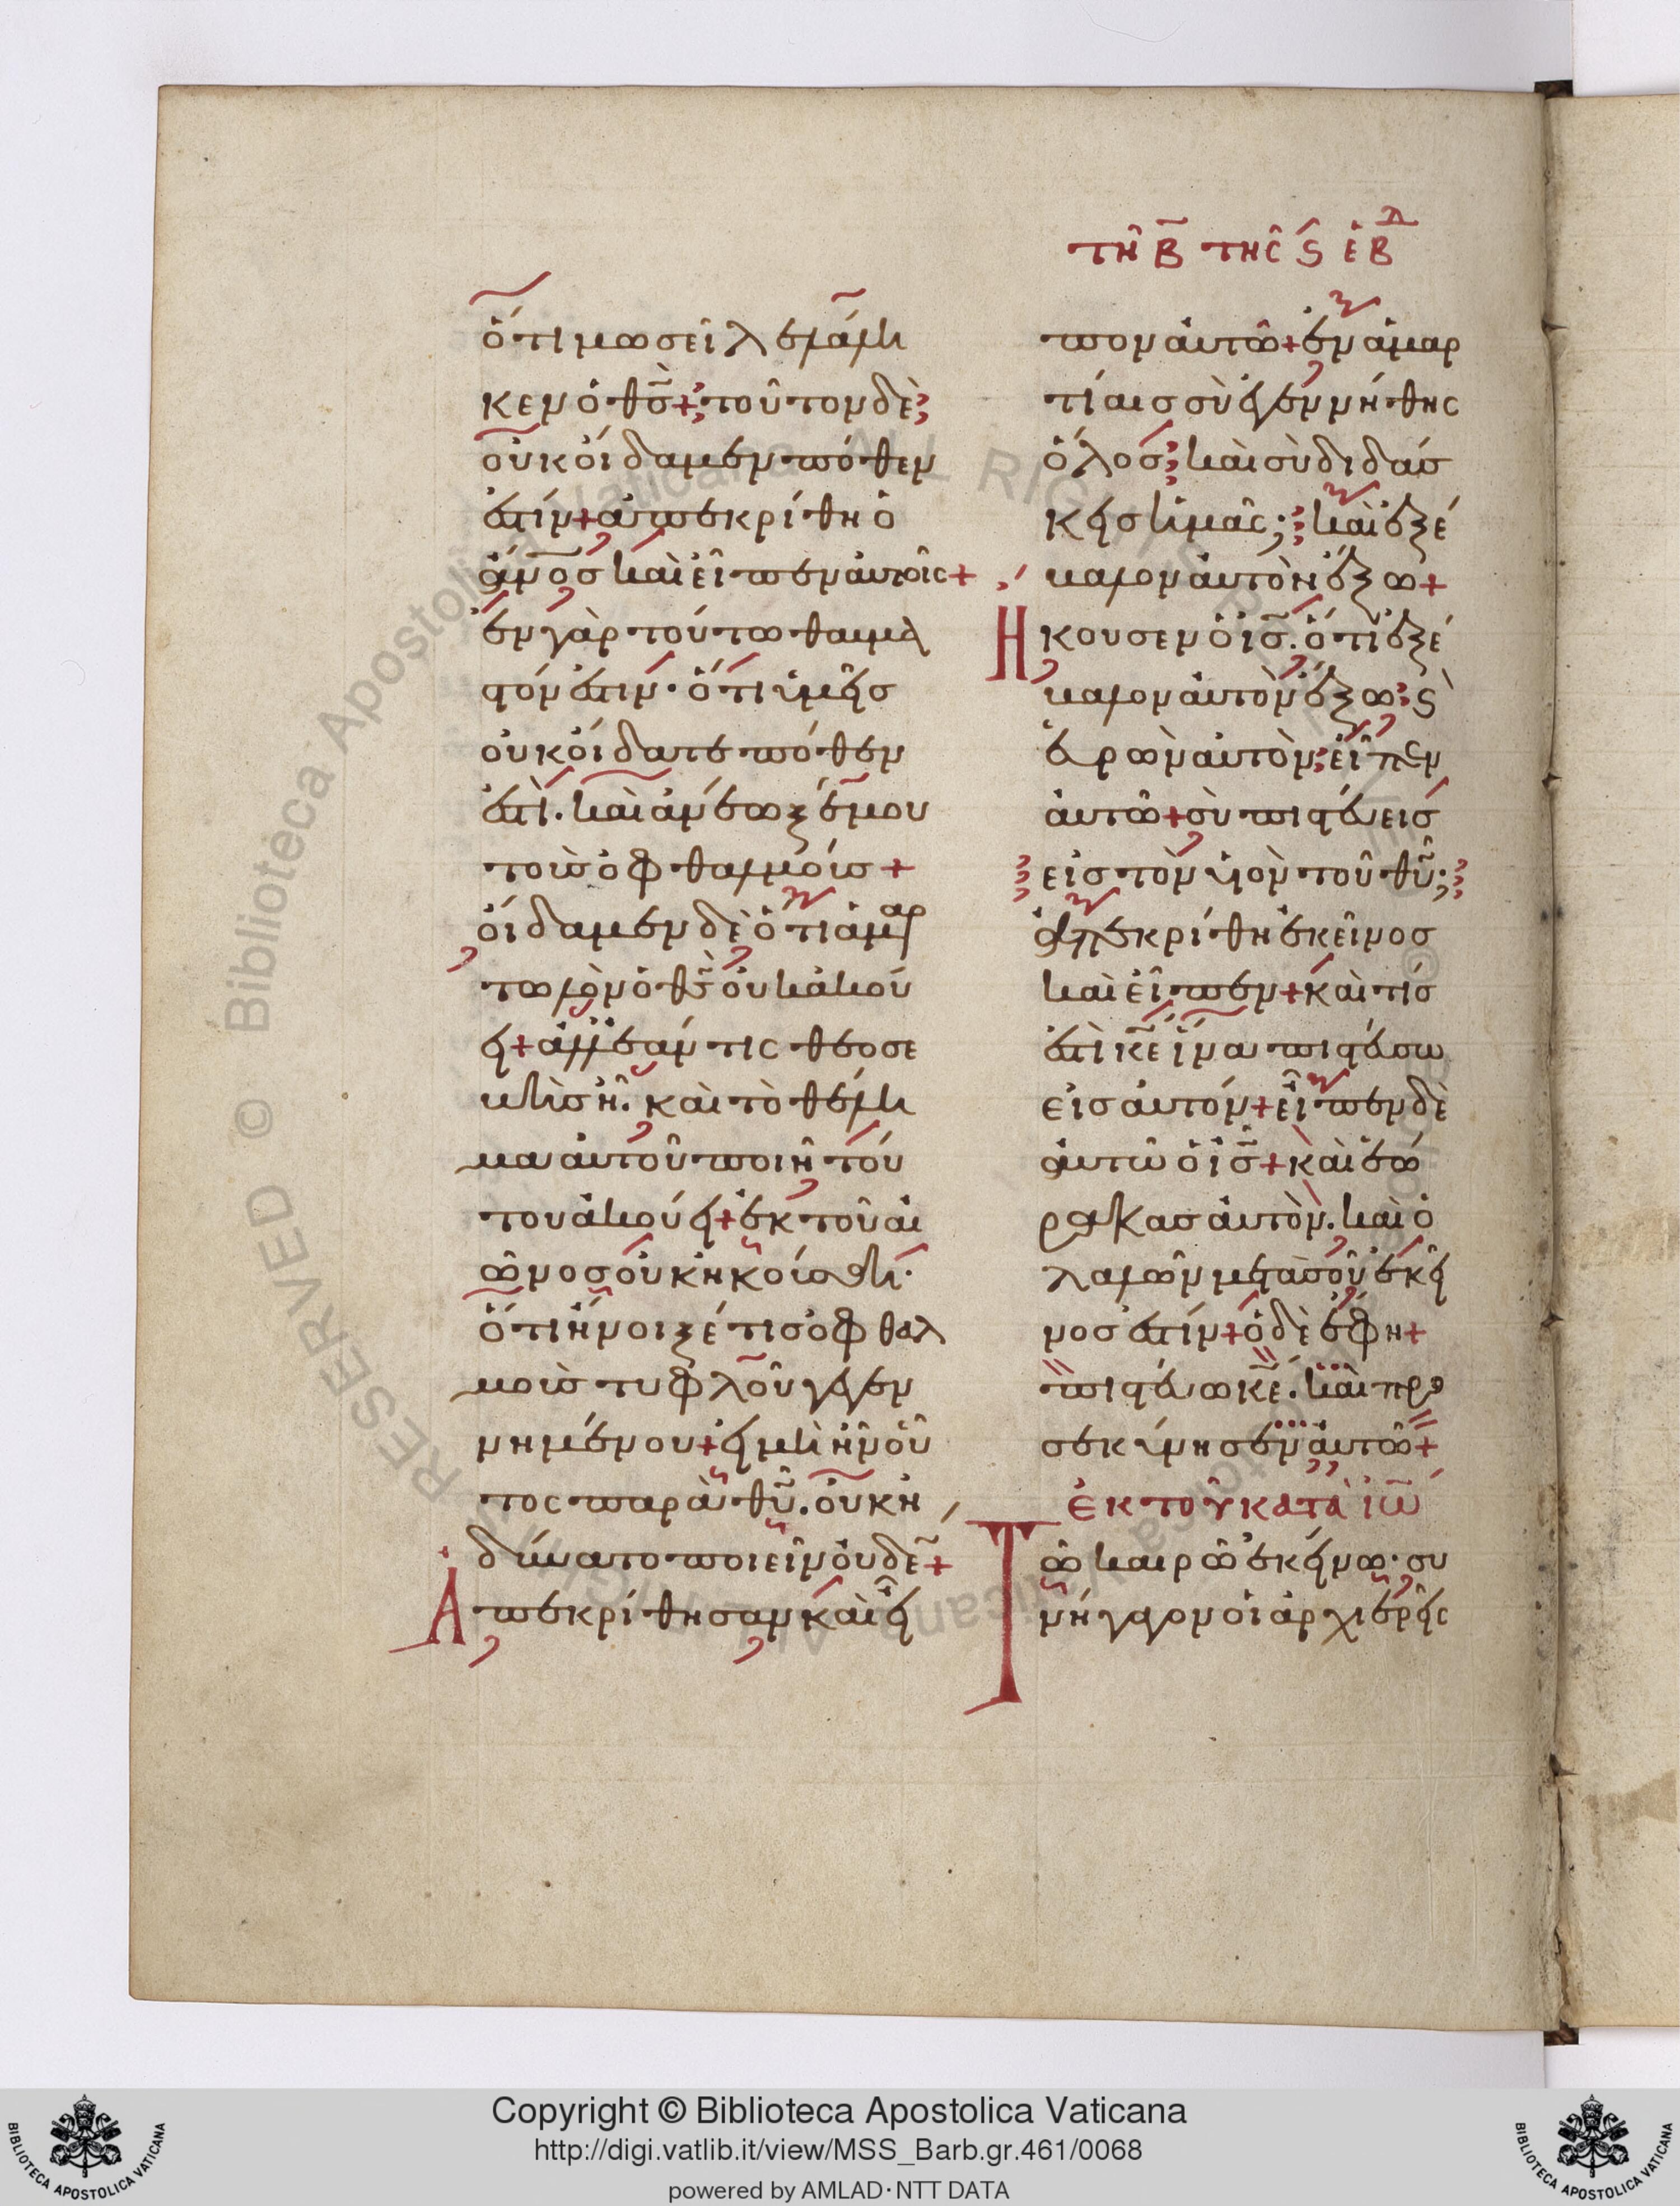 τῆ β̅ τῆς ϛ́ ἑβ̅δ
ὅτι μωσεῖ λελάλη
κεν ὁ θ̅ς̅· τοῦτον δὲ
οὐκ οἴδαμεν πόθεν
ἐστίν+ ἀπεκρίθη ὁ
ἄ̅ν̅ο̅ς̅ καὶ εἶπεν αὐτοῖς+
ἐν γὰρ τούτω θαυμα
στόν ἐστιν· ὅτι ὑμεῖς
οὐκ οἴδατε πόθεν
ἐστὶ. καὶ ἀνέωξέ μου
τοὺς ὀφθαλμούς+
οἴδαμεν δὲ ὅτι ἁμαρ
τωλὸν ὁ θ̅ς̅ οὐκ ἀκού
ει+ ἀλλ' ἐάν τις θεοσε
βὴς ἦ. καὶ τὸ θέλη
μα αὐτοῦ ποιῆ τού
του ἀκούει+ ἐκ τοῦ αἰ
ῶνος οὐκ ἠκούσθη·
ὅτι ἤνοιξέ τις ὀφθαλ
μοὺς τυφλοῦ γεγεν
νημένου+ εἰ μὴ ἦν οὗ
τος παρὰ θ̅υ̅. οὐκ ἠ
δύνατο ποιεῖν οὐδέ̅+
Ἀπεκρίθησαν καὶ εἶ
πον αὐτῶ+ ἐν ἁμαρ
τίαις σὺ ἐγεννήθης
ὅλος· καὶ σὺ διδάσ
κεις ἡμᾶς; καὶ ἐξέ
βαλον αὐτὸν ἔξω+
Ἤκουσεν ὁ ι̅ς̅. ὅτι ἐξέ
βαλον αὐτὸν ἔξω· ϗ
εὑρὼν αὐτὸν· εἶπεν
αὐτῶ+ σὺ πιστεύεις
εἰς τὸν υἱὸν τοῦ θ̅υ̅;
ἀπεκρίθη ἐκεῖνος
καὶ εἶπεν+ καὶ τίς
ἐστὶ κ̅ε̅ ἵνα πιστεύσω
εἰς αὐτόν+ εἶπεν δὲ
αὐτῶ ὁ ι̅ς̅+ καὶ ἑώ
ρακας αὐτὸν. καὶ ὁ
λαλῶν μετὰ σοῦ ἐκεῖ
νος ἐστίν+ ὁ δὲ ἔφη+
πιστεύω κ̅ε̅. καὶ προ
σεκύνησεν αὐτῶ+
ἐκ τοῦ κατὰ ἰω̅
Τῶ καιρῶ ἐκείνω· συ
νήγαγον οἱ ἀρχιερεῖς
Copyright © Biblioteca Apostolica Vaticana
http://digi.vatlib.it/view/MSS_Barb.gr.461/0068
powered by AMLAD·NTT DATA